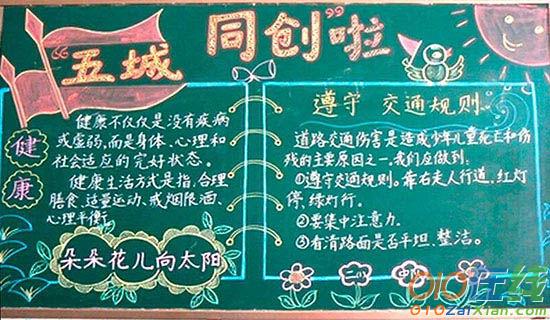 “五城同创”啦
健康
健康不仅仅是没有疾病
或虚弱,而是身体、心理和
社会适应的完好状态。
健康生活方式是指:合理
膳食、适量运动、戒烟限酒、
心理平衡。
朵朵花儿向太阳
遵守 交通规则。
道路交通伤害是造成少年儿童死亡和伤
残的主要原因之一,我们应做到:
①遵守交通规则。靠右走人行道,红灯
停,绿灯行。
②要集中注意力。
③看清路面是否平坦、整洁。
二(
010在线
010zaixian.com